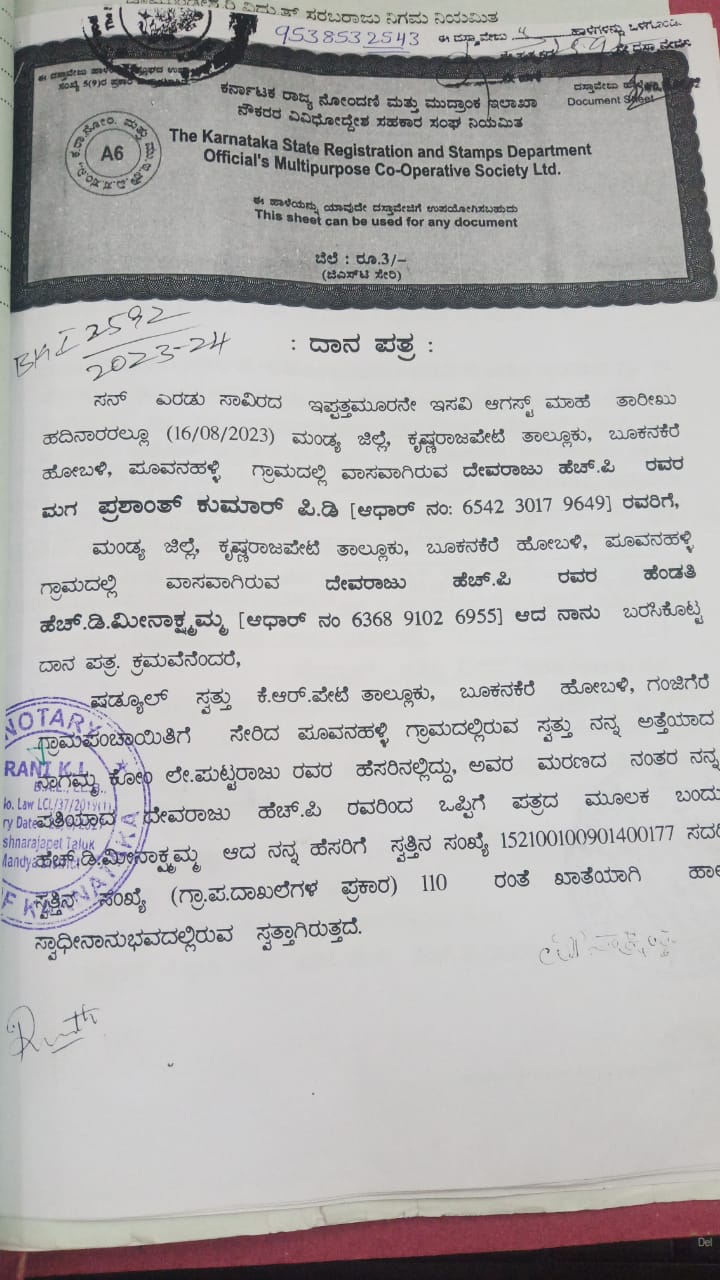 ಸರಬರಾಜು ನಿಗಮ ನಿಯಮಿತ
9538532543
ಈ ದಸ್ತಾವೇಜು 4 ಹಾಳೆಗಳನ್ನು ಒಳಗೊಂಡಿ
ಈ ದಸ್ತಾವೇಜು ಹಾಳೆ
ಸಂಖ್ಯೆ 5(9)ರ ಪ್ರಕಾರ
ದಸ್ತಾವೇಜು ಹಾಳೆ
Document Sheet
ಕರ್ನಾಟಕ ರಾಜ್ಯ ನೋಂದಣಿ ಮತ್ತು ಮುದ್ರಾಂಕ ಇಲಾಖಾ
ನೌಕರರ ವಿವಿಧೋದ್ದೇಶ ಸಹಕಾರ ಸಂಘ ನಿಯಮಿತ
A6
The Karnataka State Registration and Stamps Department
Official's Multipurpose Co-Operative Society Ltd.
ಈ ಹಾಳೆಯನ್ನು ಯಾವುದೇ ದಸ್ತಾವೇಜಿಗೆ ಉಪಯೋಗಿಸಬಹುದು
This sheet can be used for any document
ಬೆಲೆ : ರೂ.3/–
(ಜಿಎಸ್‌ಟಿ ಸೇರಿ)
BK I 2592
2023-24
: ದಾನ ಪತ್ರ :
ಸನ್ ಎರಡು ಸಾವಿರದ ಇಪ್ಪತ್ತಮೂರನೇ ಇಸವಿ ಆಗಸ್ಟ್ ಮಾಹೆ ತಾರೀಖು
ಹದಿನಾರರಲ್ಲೂ (16/08/2023) ಮಂಡ್ಯ ಜಿಲ್ಲೆ, ಕೃಷ್ಣರಾಜಪೇಟೆ ತಾಲ್ಲೂಕು, ಬೂಕನಕೆರೆ
ಹೋಬಳಿ, ಪೂವನಹಳ್ಳಿ ಗ್ರಾಮದಲ್ಲಿ ವಾಸವಾಗಿರುವ ದೇವರಾಜು ಹೆಚ್.ಪಿ ರವರ
ಮಗ ಪ್ರಶಾಂತ್ ಕುಮಾರ್ ಪಿ.ಡಿ [ಆಧಾರ್ ನಂ: 6542 3017 9649] ರವರಿಗೆ,
ಮಂಡ್ಯ ಜಿಲ್ಲೆ, ಕೃಷ್ಣರಾಜಪೇಟೆ ತಾಲ್ಲೂಕು, ಬೂಕನಕೆರೆ ಹೋಬಳಿ, ಪೂವನಹಳ್ಳಿ
ಗ್ರಾಮದಲ್ಲಿ ವಾಸವಾಗಿರುವ ದೇವರಾಜು ಹೆಚ್.ಪಿ ರವರ ಹೆಂಡತಿ
ಹೆಚ್.ಡಿ.ಮೀನಾಕ್ಷಮ್ಮ [ಆಧಾರ್ ನಂ 6368 9102 6955] ಆದ ನಾನು ಬರಸಿಕೊಟ್ಟ
ದಾನ ಪತ್ರ. ಕ್ರಮವೆನೆಂದರೆ,
ಷಡ್ಯೂಲ್ ಸ್ವತ್ತು ಕೆ.ಆರ್.ಪೇಟೆ ತಾಲ್ಲೂಕು, ಬೂಕನಕೆರೆ ಹೋಬಳಿ, ಗಂಜಿಗೆರೆ
ಗ್ರಾಮಪಂಚಾಯಿತಿಗೆ ಸೇರಿದ ಪೂವನಹಳ್ಳಿ ಗ್ರಾಮದಲ್ಲಿರುವ ಸ್ವತ್ತು ನನ್ನ ಅತ್ತೆಯಾದ
ನಾಗಮ್ಮ ಕೋಂ ಲೇ.ಪುಟ್ಟರಾಜು ರವರ ಹೆಸರಿನಲ್ಲಿದ್ದು, ಅವರ ಮರಣದ ನಂತರ ನನ್ನ
ಪತಿಯಾದ ದೇವರಾಜು ಹೆಚ್.ಪಿ ರವರಿಂದ ಒಪ್ಪಿಗೆ ಪತ್ರದ ಮೂಲಕ ಬಂದು
ಹೆಚ್.ಡಿ.ಮೀನಾಕ್ಷಮ್ಮ ಆದ ನನ್ನ ಹೆಸರಿಗೆ ಸ್ವತ್ತಿನ ಸಂಖ್ಯೆ 152100100901400177 ಸದರಿ
ಸ್ವತ್ತಿನ ಸಂಖ್ಯೆ (ಗ್ರಾ.ಪ.ದಾಖಲೆಗಳ ಪ್ರಕಾರ) 110 ರಂತೆ ಖಾತೆಯಾಗಿ ಹಾಲಿ
ಸ್ವಾಧೀನಾನುಭವದಲ್ಲಿರುವ ಸ್ವತ್ತಾಗಿರುತ್ತದೆ.
NOTARY
RANI K.L.
Law LCL/37/2019
shnarajapet Taluk
Mandya
Del